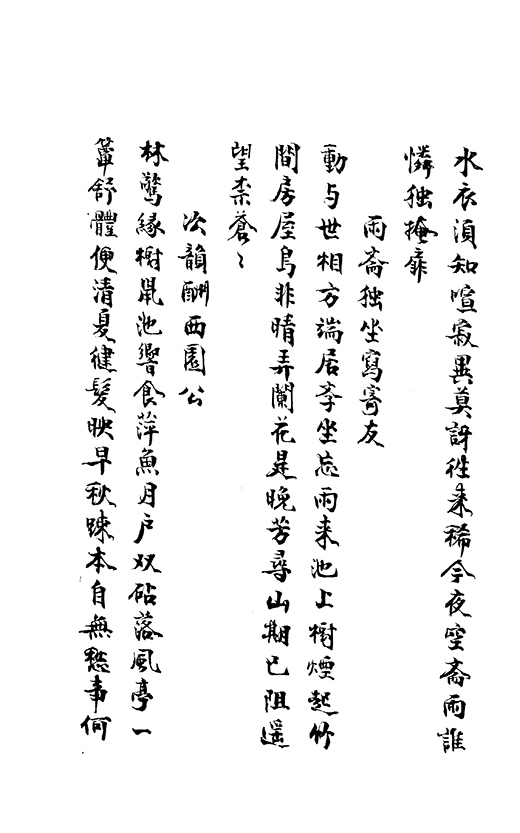 水衣須知喧寂異莫訝往来稀今夜空齋雨誰
憐独掩扉
雨齋独坐寫寄友
動与世相方端居孝坐忘雨来池上樹煙起竹
間房屋鳥非晴弄闌花是晚芳尋山期已阻遥
望柰蒼〻
次韻酬西園公
林驚縁樹鼠池響食萍魚月戸双砧落風亭一
簟舒體便清夏健髪映早秋踈本自無愁事何